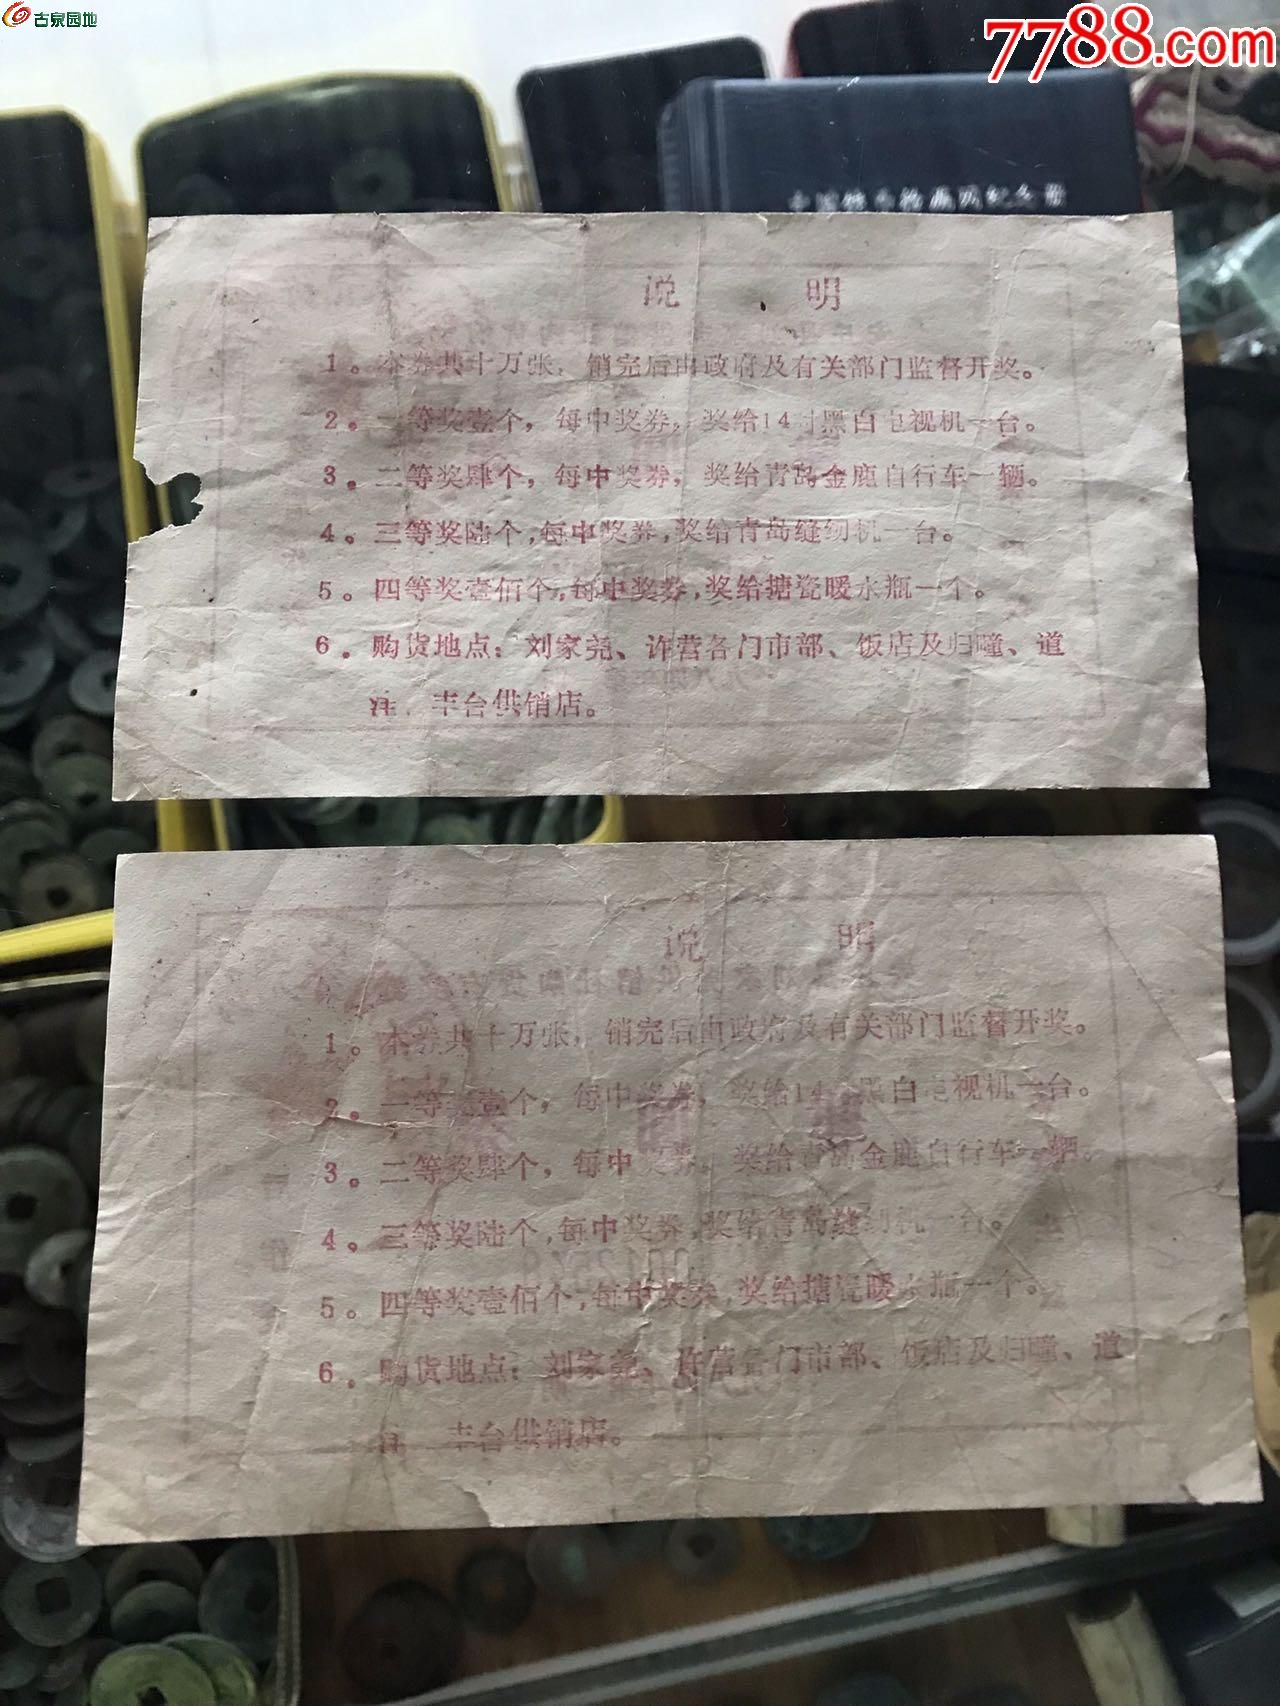 古泉园地
7788.com
说 明
1。本券共十万张，销完后由政府及有关部门监督开奖。
2。一等奖壹个，每中奖券，奖给14吋黑白电视机一台。
3。二等奖肆个，每中奖券，奖给青岛金鹿自行车一辆。
4。三等奖陆个，每中奖券，奖给青岛缝纫机一台。
5。四等奖壹佰个，每中奖券，奖给搪瓷暖水瓶一个。
6。购货地点：刘家尧、许营各门市部、饭店及归疃、道
注、丰台供销店。
说 明
1。本券共十万张，销完后由政府及有关部门监督开奖。
2。一等奖壹个，每中奖券，奖给14 黑白电视机一台。
3。二等奖肆个，每中奖券，奖给青岛金鹿自行车一辆。
4。三等奖陆个，每中奖券，奖给青岛缝纫机一台。
5。四等奖壹佰个，每中奖券，奖给搪瓷暖水瓶一个。
6。购货地点：刘家尧、许营各门市部、饭店及归疃、道
注 丰台供销店。